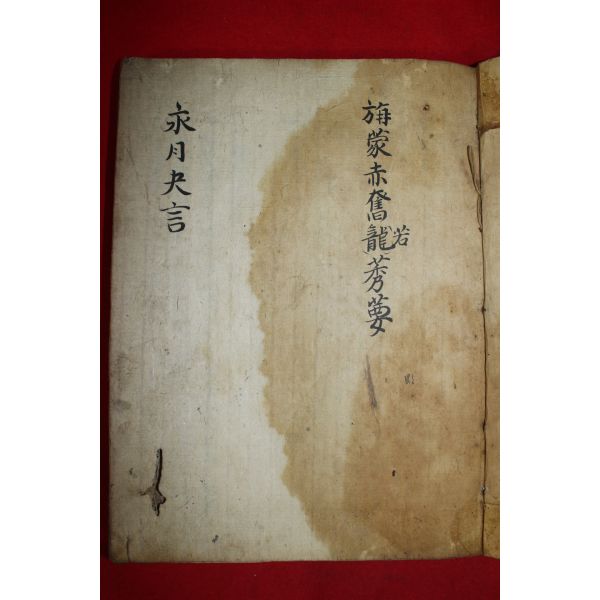 旃蒙赤奮龍若莠葽
永月夬言